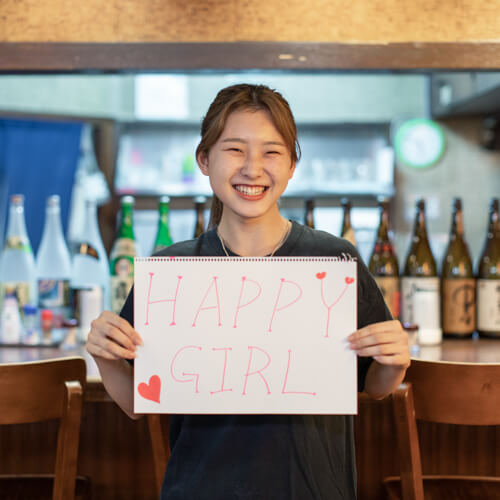 HAPPY
GIRL